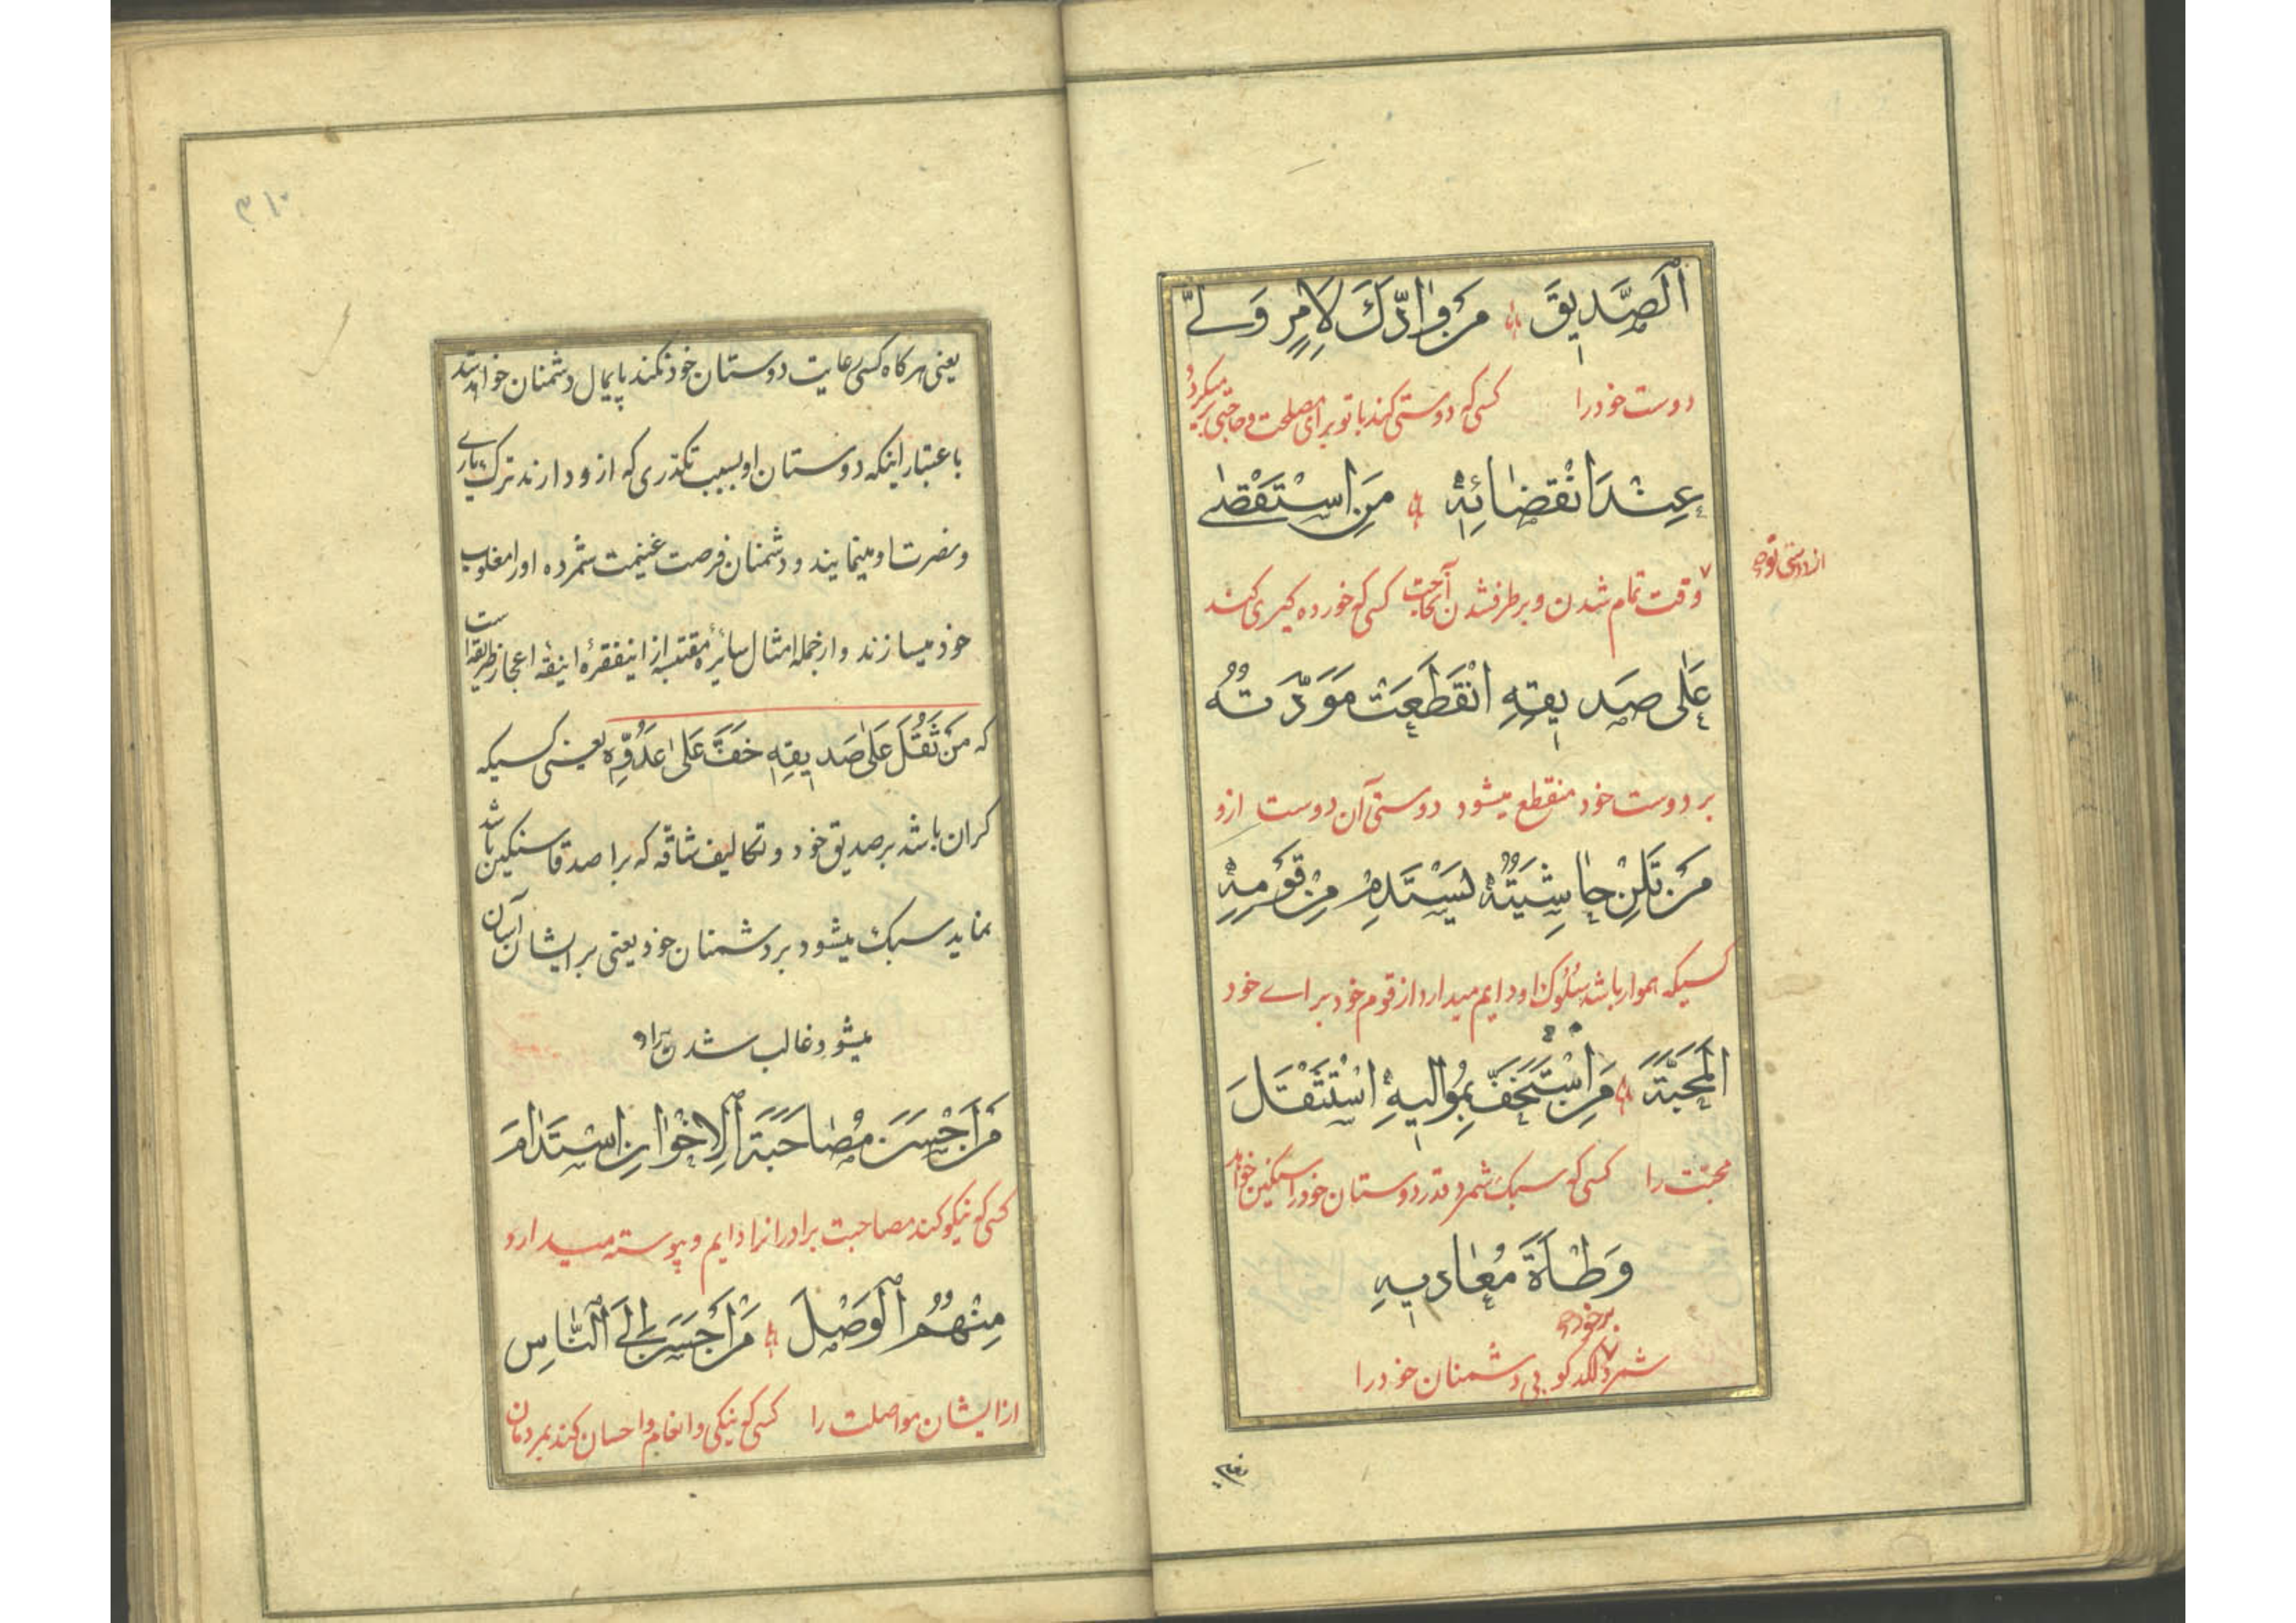 اَلصَّدِيقَ مَنْ وٰادَّكَ لِاَمْرٍ وَلّٰى
دوست خود را کسی که دوستی کند با تو برای مصلحت و حاجتی برمیکردد
عِنْدَ انْقِضٰائِهِ مَنِ اسْتَقْصٰى
از دوستی تو
وقت تمام شدن و برطرفشدن آنحاجت کسی که خورده کیری کند
عَلٰى صَدِيقِهِ انْقَطَعَتْ مَوَدَّتُهُ
بر دوست خود منقطع میشود دوستی آن دوست ازو
مَنْ تَلِنْ حٰاشِيَتُهُ يَسْتَدِمْ مِنْ قَوْمِهِ
کسیکه هموار باشد سلوک او دایم میدارد از قوم خود برای خود
اَلْمَحَبَّةَ مَنِ اسْتَخَفَّ بِمُوٰالِيهِ اسْتَثْقَلَ
محبّت را کسی که سبک شمرد قدر دوستان خود را سنکین خواهد
وَطْأَةَ مُعٰادِيهِ
بر خود
شمرد لکد کوبی دشمنان خود را
۳۱۰
یعنی هرکاه کسی رعایت دوستان خود نکند پایمال دشمنان خواهد شد
باعتبار اینکه دوستان او بسبب تکدّری که ازو دارند ترک یاری
و نصرت او مینمایند و دشمنان فرصت غنیمت شمرده او را مغلوب
خود میسازند و از جمله امثال سائره مقتبسه از اینفقرهٔ انیقه اعجاز طریقه است
که مَنْ ثَقُلَ عَلٰى صَدِيقِهِ خَفَّ عَلٰى عَدُوِّهِ یعنی کسیکه
کران باشد بر صدیق خود و تکالیف شاقّه که بر اصدقا سنکین باشد
نماید سبک میشود بر دشمنان خود یعنی بر ایشان آسان
میشود غالب شدن بر او
مَنْ اَحْسَنَ مُصٰاحَبَةَ الْاِخْوٰانِ اسْتَدٰامَ
کسی که نیکو کند مصاحبت برادرانرا دایم و پیوسته میدارد
مِنْهُمُ الْوَصْلَ مَنْ اَحْسَنَ اِلَى النّٰاسِ
از ایشان مواصلت را کسی که نیکی و انعام و احسان کند بمردمان